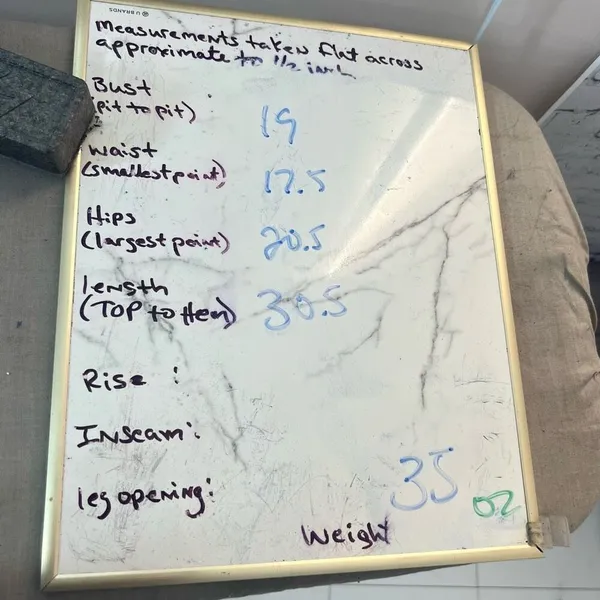 U BRANDS
measurements taken flat across
approximate to 1/2 inch
Bust
(pit to pit) 19
waist
(smallest point) 17.5
Hips
(largest point) 20.5
length
(TOP to Hem) 30.5
Rise :
Inseam:
leg opening:
35 oz
Weight